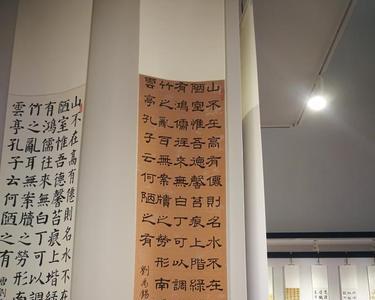 山不在高有僊則名水不在
陋室惟吾德馨苔痕上階緑
有鴻儒往來無白丁可以調
竹之亂耳無案牘之勞形南
雲亭孔子云何陋之有
劉禹錫
山不在高有僊則名水不在
陋室惟吾德馨苔痕上階緑
有鴻儒往來無白丁可以調
竹之亂耳無案牘之勞形南
雲亭孔子云何陋之有